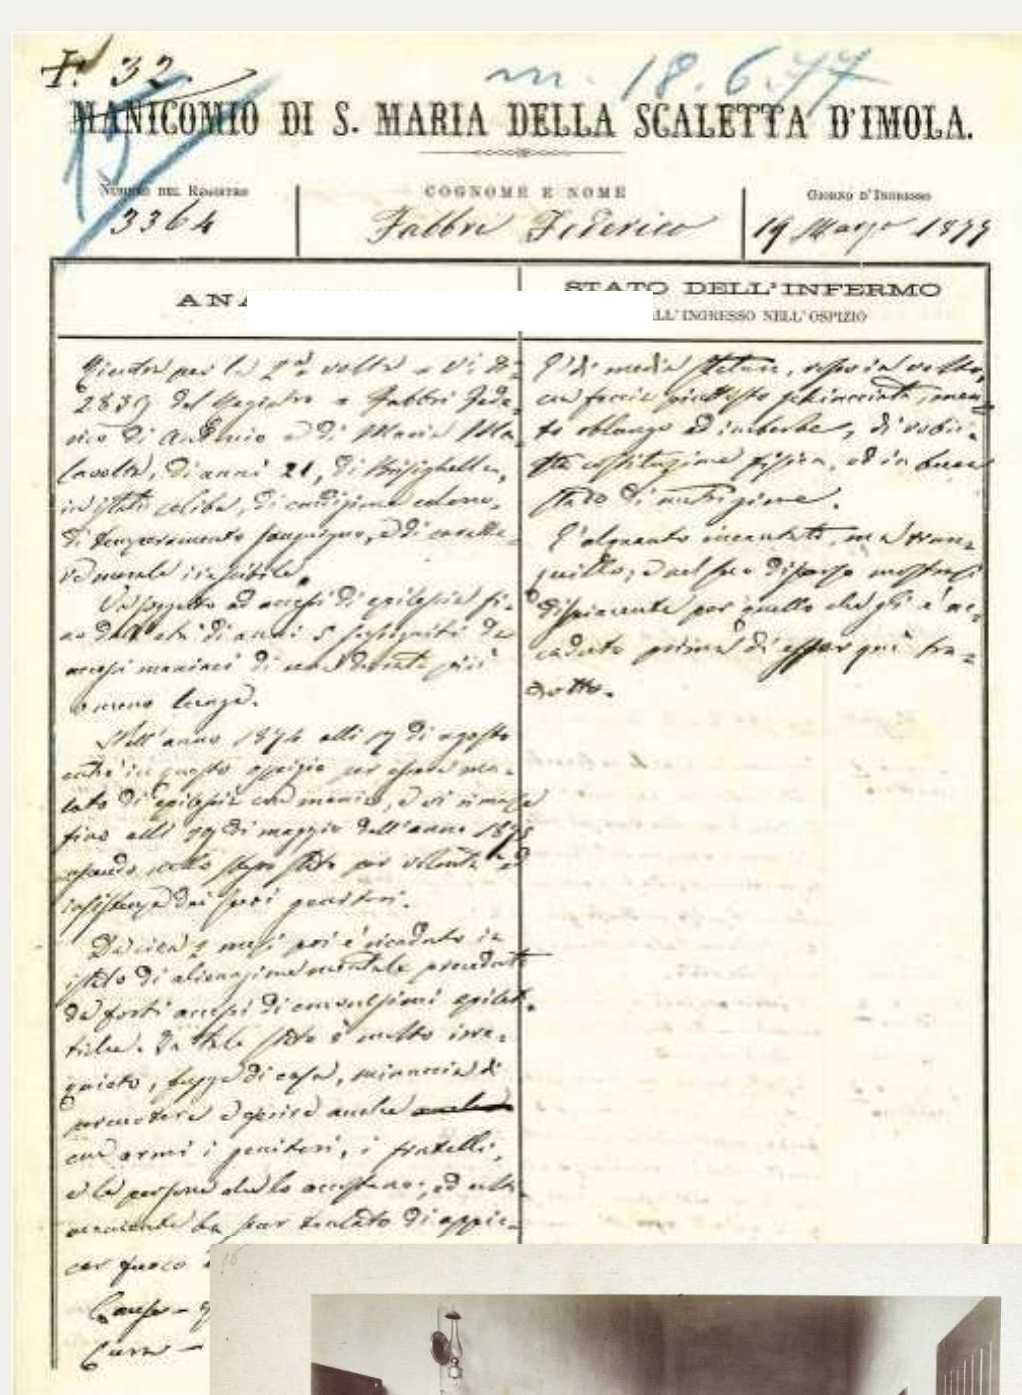 F. 32
m. 18.6.77
15
MANICOMIO DI S. MARIA DELLA SCALETTA D'IMOLA.
NUMERO DEL REGISTRO
3364
COGNOME E NOME
Fabbri Federico
GIORNO D'INGRESSO
19 Marzo 1877
ANA
STATO DELL'INFERMO
ALL'INGRESSO NELL'OSPIZIO
per la 2ª volta
2839 del Registro Fabbri Fede=
rico di Antonio e di Maria Ma=
lavolta, di anni 21, di Brisighella,
in istato celibe, di condizione colono,
di temperamento sanguigno, e di
morale
soggetto ad accessi di epilessia fi=
no dall'età di anni 5 susseguiti da
accessi maniaci di una durata più
o meno lunga.
Nell'anno 1874 alli 17 di agosto
entrò in questo ospizio per essere ma=
lato di epilessia con mania, e vi rimase
fino alli 29 di maggio dell'anno 1875
nello stesso stato per volontà ed
insistenza dei suoi genitori.
Da circa 2 mesi poi è ricaduto in
istato di alienazione mentale preceduto
da forti accessi di convulsioni epilet=
tiche. In tale stato è molto irre=
quieto, fugge di casa, minaccia di
percuotere e ferire anche
con armi i genitori, i fratelli,
e le persone che lo accostano, ed
ha pur tentato di appic=
car fuoco
Cause -
Cura -
È di media statura, roseo in volto,
con faccia piuttosto schiacciata, men=
to oblungo ed imberbe, di robu=
sta costituzione fisica, ed in buon
stato di nutrizione.
È alquanto ma tran=
quillo, e nel suo discorso mostrasi
dispiacente per quello che gli è ac=
caduto prima di esser qui tra=
dotto.